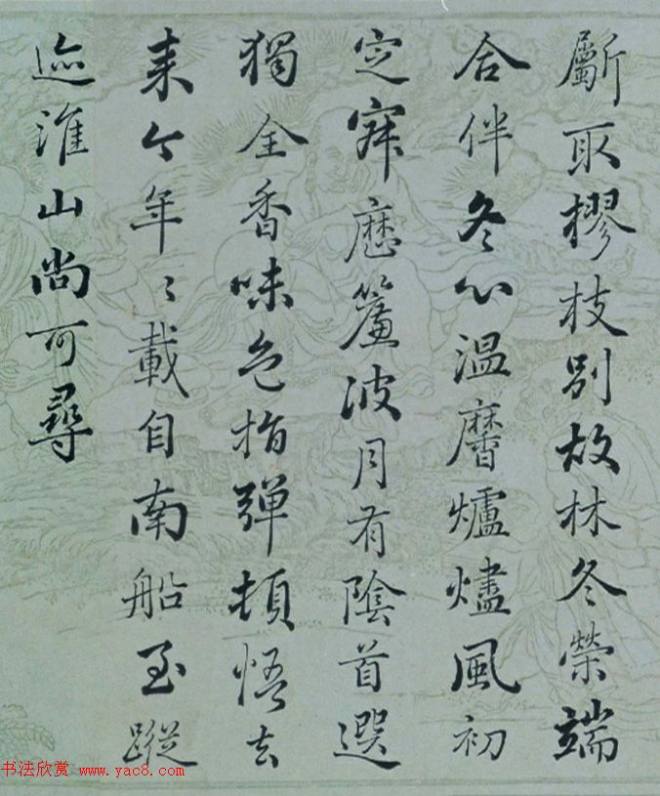 斸取樛枝別故林冬榮端
合伴冬心温黁爐燼風初
定寂歷簾波月有陰首選
獨全香味色指彈頓悟去
来今年〻載自南船至蹤
迹淮山尚可尋
书法欣赏 www.yac8.com